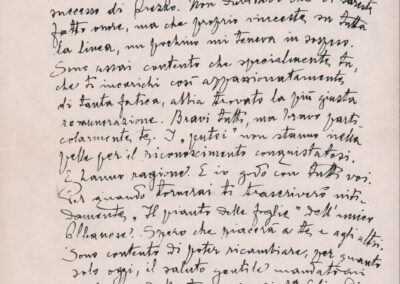 successo di Arezzo. Non
fatto onore, ma che proprio vinceste su tutta
la linea, un pochino mi teneva in sospeso.
Sono assai contento che specialmente tu,
che ti incarichi così appassionatamente
di tanta fatica, abbia trovato la più giusta
remunerazione. Bravi tutti, ma bravo parti-
colarmente te. I „putei" non stanno nella
pelle per il riconoscimento conquistatosi.
E hanno ragione. E io godo con tutti voi.
Per quando tornerai ti trascriverò niti-
damente, „Il pianto delle foglie" dell'amico
Albanese. Spero che piacerà a te, e agli altri.
Sono contento di poter ricambiare, per quanto
solo oggi, il saluto gentile mandatomi